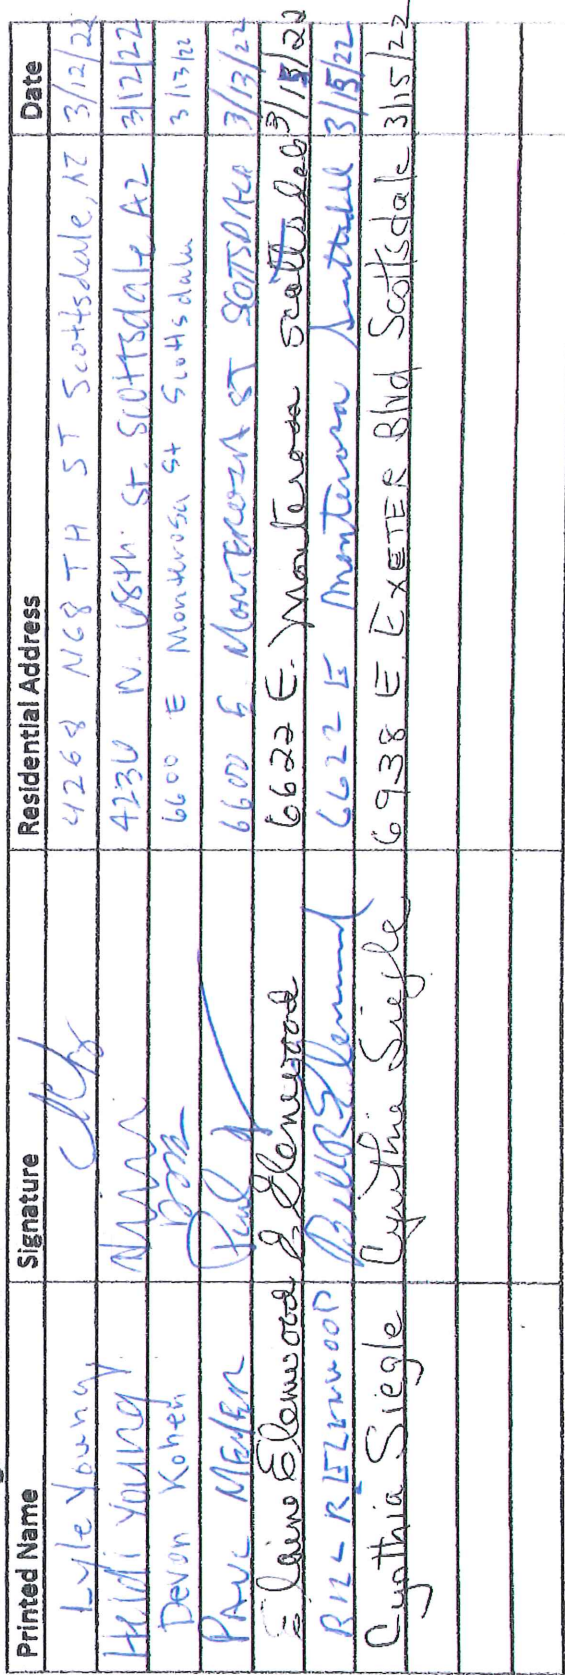 Printed Name Signature Residential Address Date
Lyle Young 4268 N 68 TH ST Scottsdale, AZ 3/12/22
Heidi Young 4230 N. 68th St. Scottsdale AZ 3/12/22
Devon Kohen 6600 E Monterosa St Scottsdale 3/13/22
PAUL MEYER Paul 6600 E MONTEROSA ST SCOTTSDALE 3/13/22
Elaine Elenwood E Elenwood 6622 E. Monterosa Scottsdale 3/15/22
BILL R ELENWOOD Bill R Elenwood 6622 E Monterosa Scottsdale 3/15/22
Cynthia Siegle Cynthia Siegle 6938 E. EXETER Blvd Scottsdale 3/15/22